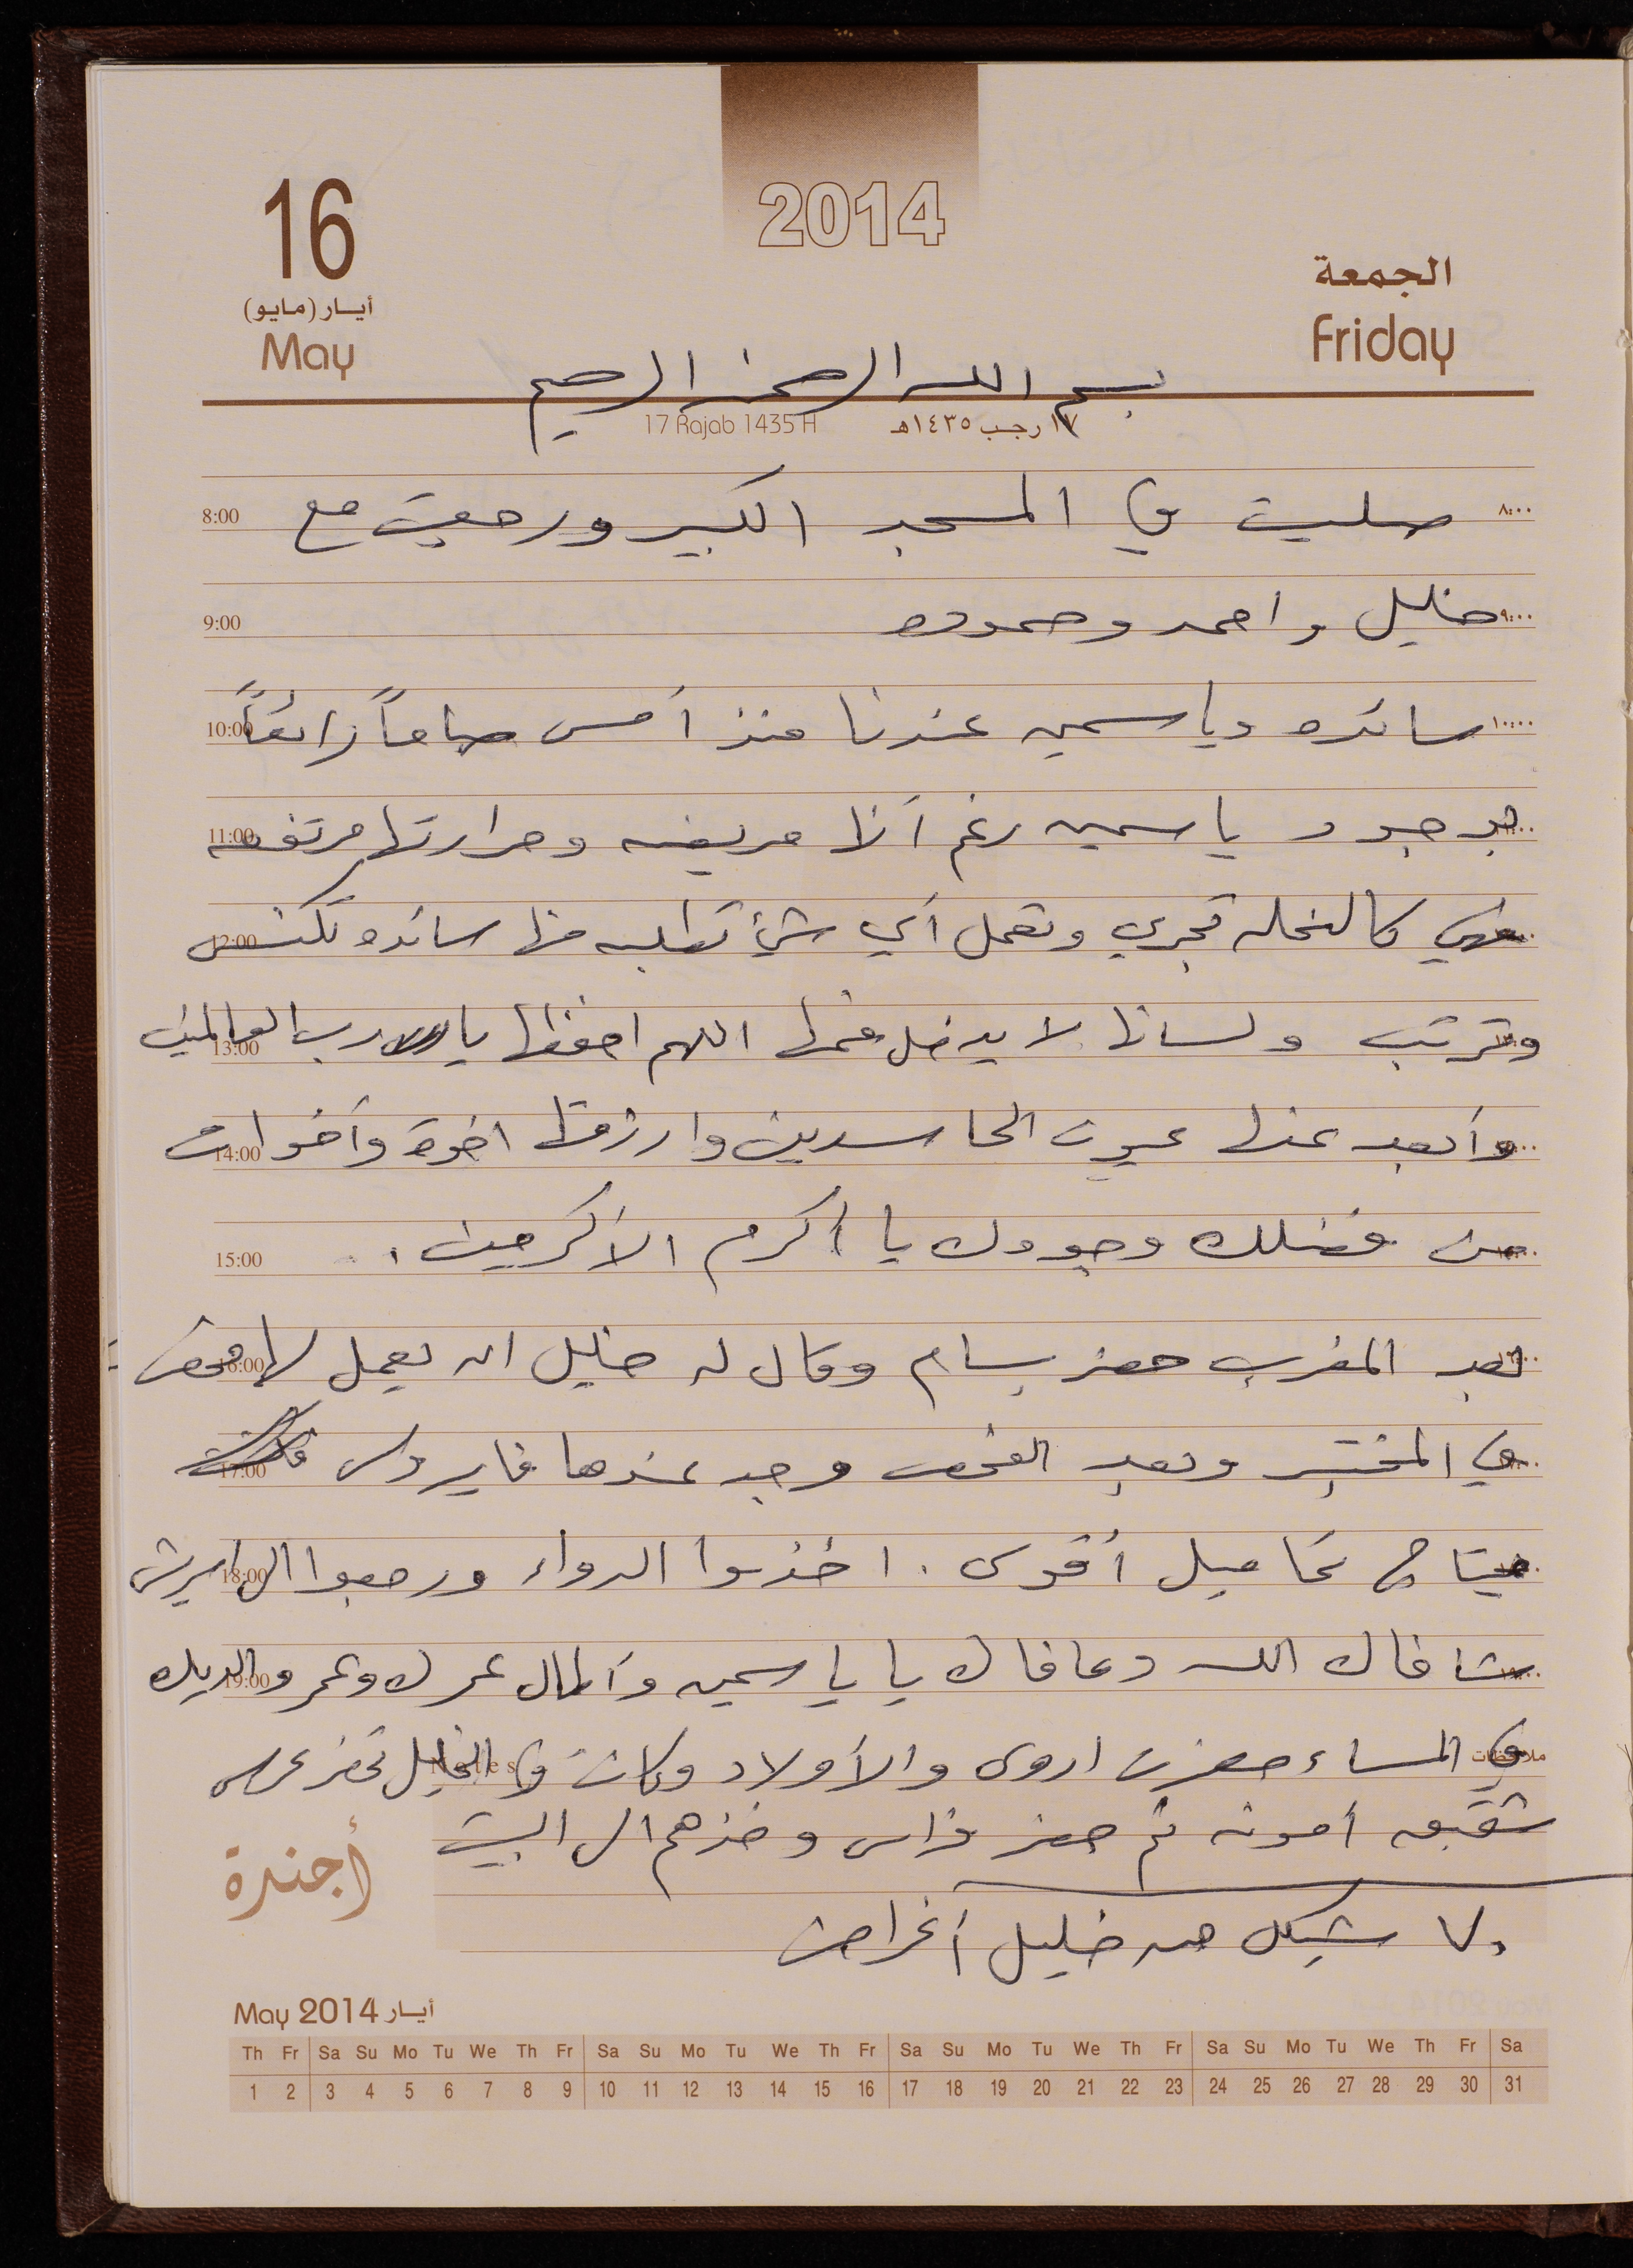 2014
16
أيار (مايو)
May
الجمعة
Friday
بسم الله الرحمن الرحيم
17 Rajab 1435 H ١٧ رجب ١٤٣٥هـ
8:00 صليت في المسجد الكبير ورجعت مع ٨:٠٠
9:00 خليل واحمد وحموده ٩:٠٠
10:00 سائده وياسمين عندنا منذ أمس صباحاً رائعاً ١٠:٠٠
11:00 بوجود ياسمين رغم أنها مريضه وحرارتها مرتفعه
12:00 فهي كالنحله تجري وتعمل أي شيء تطلبه منها سائده تكنس
13:00 وترتب ولسانها لا يدخل فمها اللهم احفظها يا رب العالمين
14:00 وأبعد عنها عيون الحاسدين وارزقها اخوة وأخوات
15:00 من فضلك وجودك يا أكرم الأكرمين .
16:00 بعد المغرب حضر بسام وقال له خليل ان يعمل لها فحص
17:00 في المختبر وبعد الفحص وجد عندها فايروس
18:00 تحتاج تحاميل أقوى . اخذوا الدواء ورجعوا الى
19:00 شافاك الله وعافاك يا ياسمين وأطال عمرك وعمر والديك
ملاحظات Notes في المساء حضرت اروى والأولاد وكانت في الخليل تحضر عرس
شقيقه أمونه ثم حضر فراس وخذهم الى البيت
أجندة
٧٠ شيكل من خليل أغراض
May 2014 أيار
Th Fr Sa Su Mo Tu We Th Fr Sa Su Mo Tu We Th Fr Sa Su Mo Tu We Th Fr Sa Su Mo Tu We Th Fr Sa
1 2 3 4 5 6 7 8 9 10 11 12 13 14 15 16 17 18 19 20 21 22 23 24 25 26 27 28 29 30 31